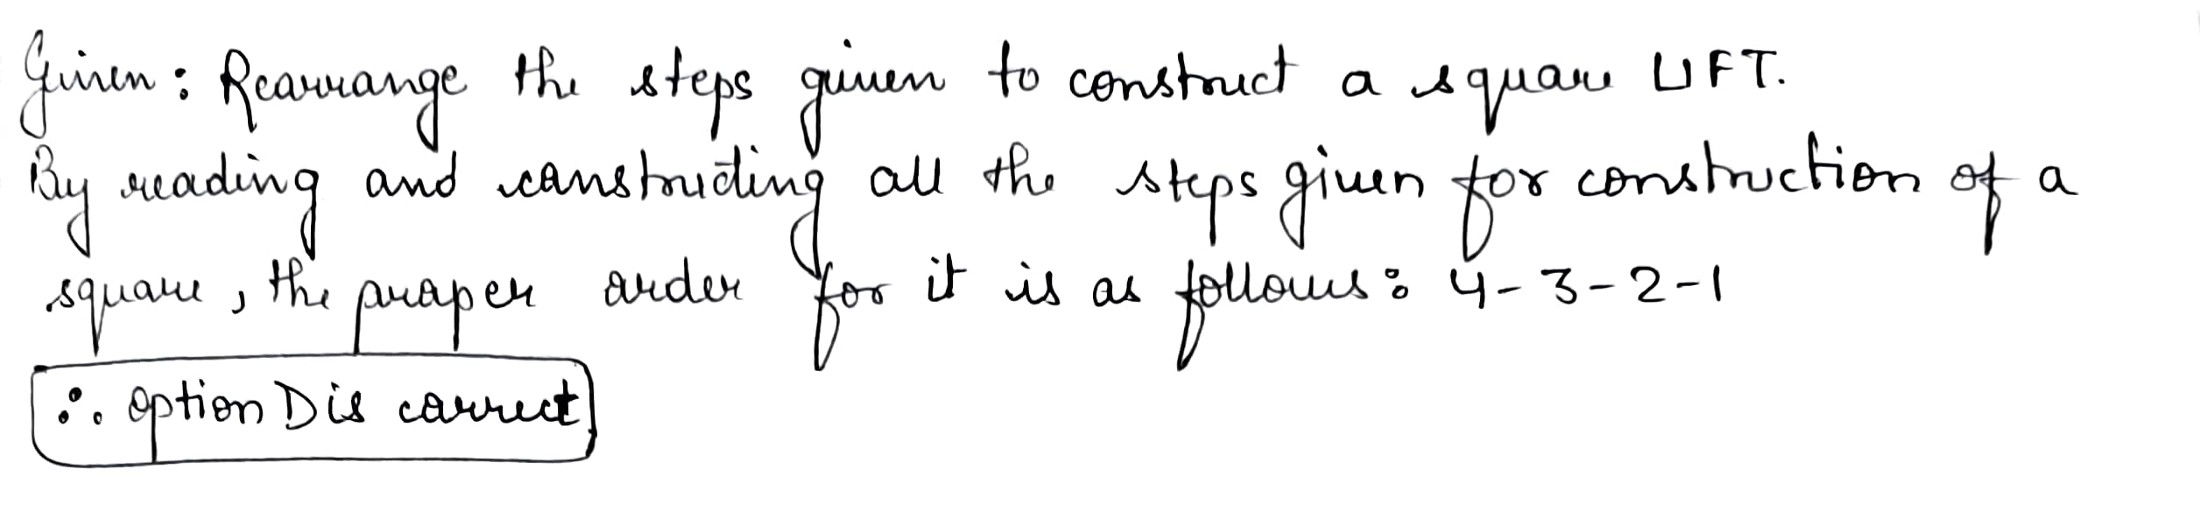 Given : Rearrange the steps given to construct a square LIFT.
By reading and constructing all the steps given for construction of a
square, the proper order for it is as follows : 4-3-2-1
∴ option D is correct